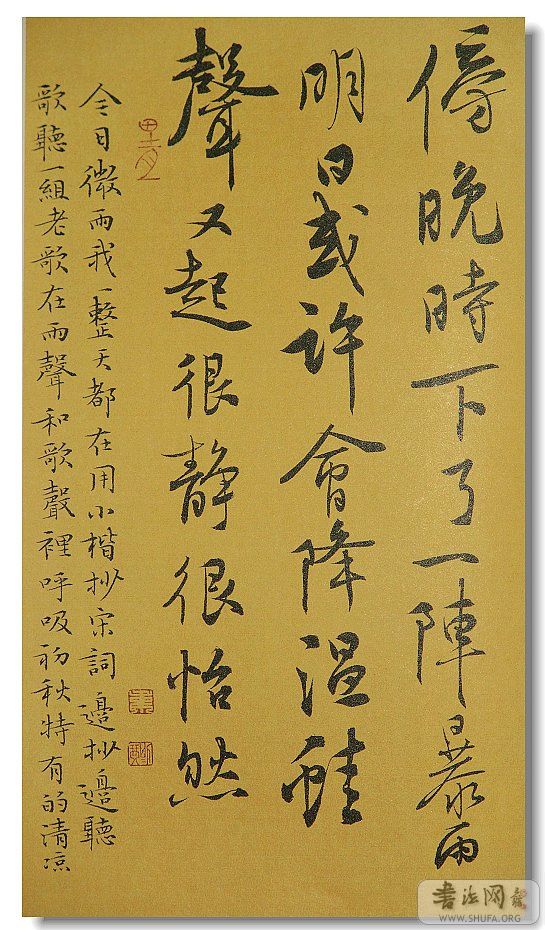 傍晚時下了一陣暴雨
明日或許會降温蛙
聲又起很静很怡然
今日微雨我一整天都在用小楷抄宋詞邊抄邊聽
歌聽一組老歌在雨聲和歌聲裡呼吸初秋特有的清凉
书法网
WWW.SHUFA.ORG